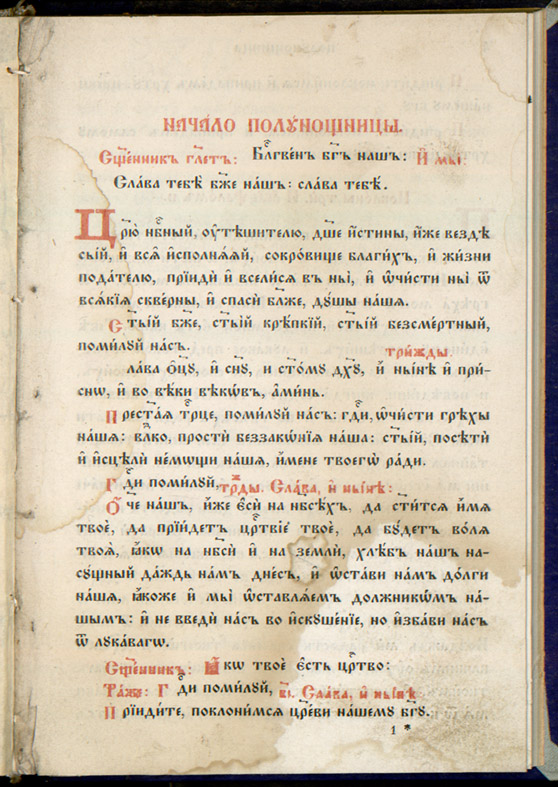 НАЧА́ЛО ПОЛУ́НОЩНИЦЫ.
Сщ҃е́нникъ гл҃етъ: Бл҃гве́нъ бг҃ъ на́шъ: И҆ мы̀:
Сла́ва тебѣ̀ бж҃е на́шъ: сла́ва тебѣ̀.
Ц҃рю̀ нбⷭ҇ный, ᲂу҆тѣ́шителю, дш҃е и҆́стины, и҆́же вездѣ̀
сы́й, и҆ всѧ̑ и҆сполнѧ́ѧй, сокро́вище благи́хъ, и҆ жи́зни
пода́телю, прїидѝ и҆ всели́сѧ въ ны̀, и҆ ѡ҆чи́сти ны̀ ѿ
всѧ́кїѧ скве́рны, и҆ спасѝ бл҃же, дꙋ́шы на́шѧ.
Ст҃ы́й бж҃е, ст҃ы́й крѣ́пкїй, ст҃ы́й безсме́ртный,
поми́лꙋй на́съ. три́жды.
ла́ва ѻ҆ц҃ꙋ̀, и҆ сн҃ꙋ, и҆ ст҃о́мꙋ дх҃ꙋ, и҆ ны́нѣ и҆ при́-
снѡ, и҆ во вѣ́ки вѣкѡ́въ, а҆ми́нь.
Прест҃а́ѧ трⷪ҇це, поми́лꙋй на́съ: гдⷭ҇и, ѡ҆чи́сти грѣхѝ
на́шѧ: влⷣко, простѝ беззакѡ́нїѧ на́ша: ст҃ы́й, посѣтѝ
и҆ и҆сцѣлѝ не́мѡщи на́шѧ, и҆́мене твоегѡ̀ ра́ди.
Гдⷭ҇и поми́лꙋй, трⷤды. Сла́ва, и҆ ны́нѣ:
Ѻ҆́ч҃е на́шъ, и҆́же є҆сѝ на нб҃сѣ́хъ, да ст҃и́тсѧ и҆́мѧ
твоѐ, да прїи́детъ црⷭ҇твїе твоѐ, да бꙋ́детъ во́лѧ
твоѧ̀, ꙗ҆́кѡ на нб҃сѝ и҆ на землѝ, хлѣ́бъ на́шъ на-
сꙋ́щный да́ждь на́мъ дне́сь, и҆ ѡ҆ста́ви на́мъ до́лги
на́шѧ, ꙗ҆́коже и҆ мы̀ ѡ҆ставлѧ́емъ должникѡ́мъ на́-
шымъ: и҆ не введѝ на́съ во и҆скꙋше́нїе, но и҆зба́ви на́съ
ѿ лꙋка́вагѡ.
Сщ҃е́нникъ: Ꙗ҆́кѡ твоѐ є҆́сть црⷭ҇тво:
Та́же: Гдⷭ҇и поми́лꙋй, в҃і. Сла́ва, и҆ ны́нѣ
Прїиди́те, поклони́мсѧ цр҃е́ви на́шемꙋ бг҃ꙋ.
1 *